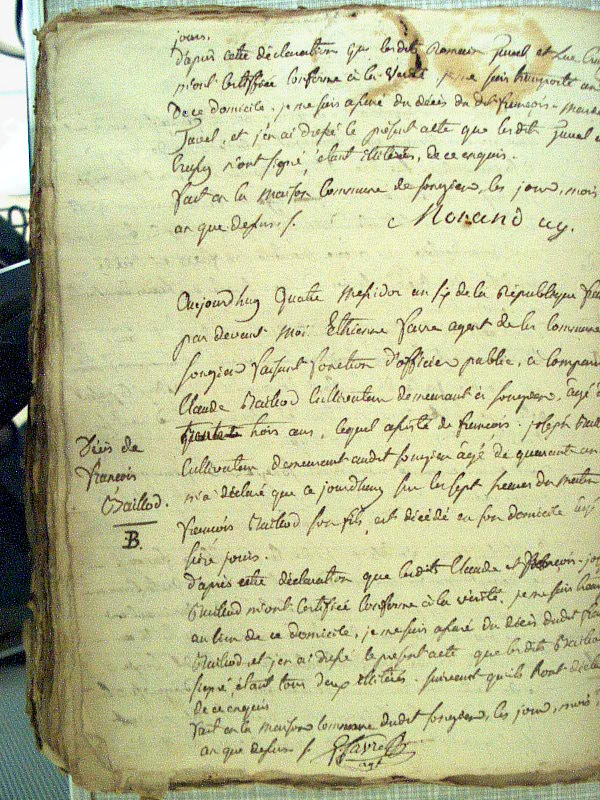 jours.
d'après cette déclaration que lesdits Romain Juvel et Luc
m'ont Certifiée Conforme à la Vérité, je me suis transporté au
De ce domicile, je me suis assuré du décès du dit françois-Marie
Juvel, et j'en ai dressé le présent acte que lesdits Juvel
n'ont signé, étant illitérés, de ce enquis.
fait en la Maison Commune de songieu, les jour, mois
an que dessus /.
Morand ag.
Aujourdhuy Quatre Messidor an six de la République
par devant Moi Ethienne favre agent de la Commune
songieu faisant fonction d'officier public, à comparu
Claude Baillod Cultivateur demeurant à songieu, âgé
trente trois ans, lequel assisté de francois-joseph
Cultivateur, demeurant audit songieu âgé de quarant an
m'a déclaré que ce jourdhuy sur les sept heures du Matin
francois Baillod son fils, est décédé en son domicile âgé
jours.
d'après cette déclaration que lesdits Claude et francois-jo
Baillod m'ont Certifiée Conforme à la vérité, je me suis
au lieu de ce domicile, je me suis assuré du décès dudit
Baillod, et j'en ai dressé le présent acte que lesdits Baillod
signé étant tous deux illitérés, suivant qu'ils l'ont
de ce enquis
fait en la maison Commune dudit songieu, les jour, mois
an que dessus /.
favre
agt
Décès de
françois
Baillod.
B.